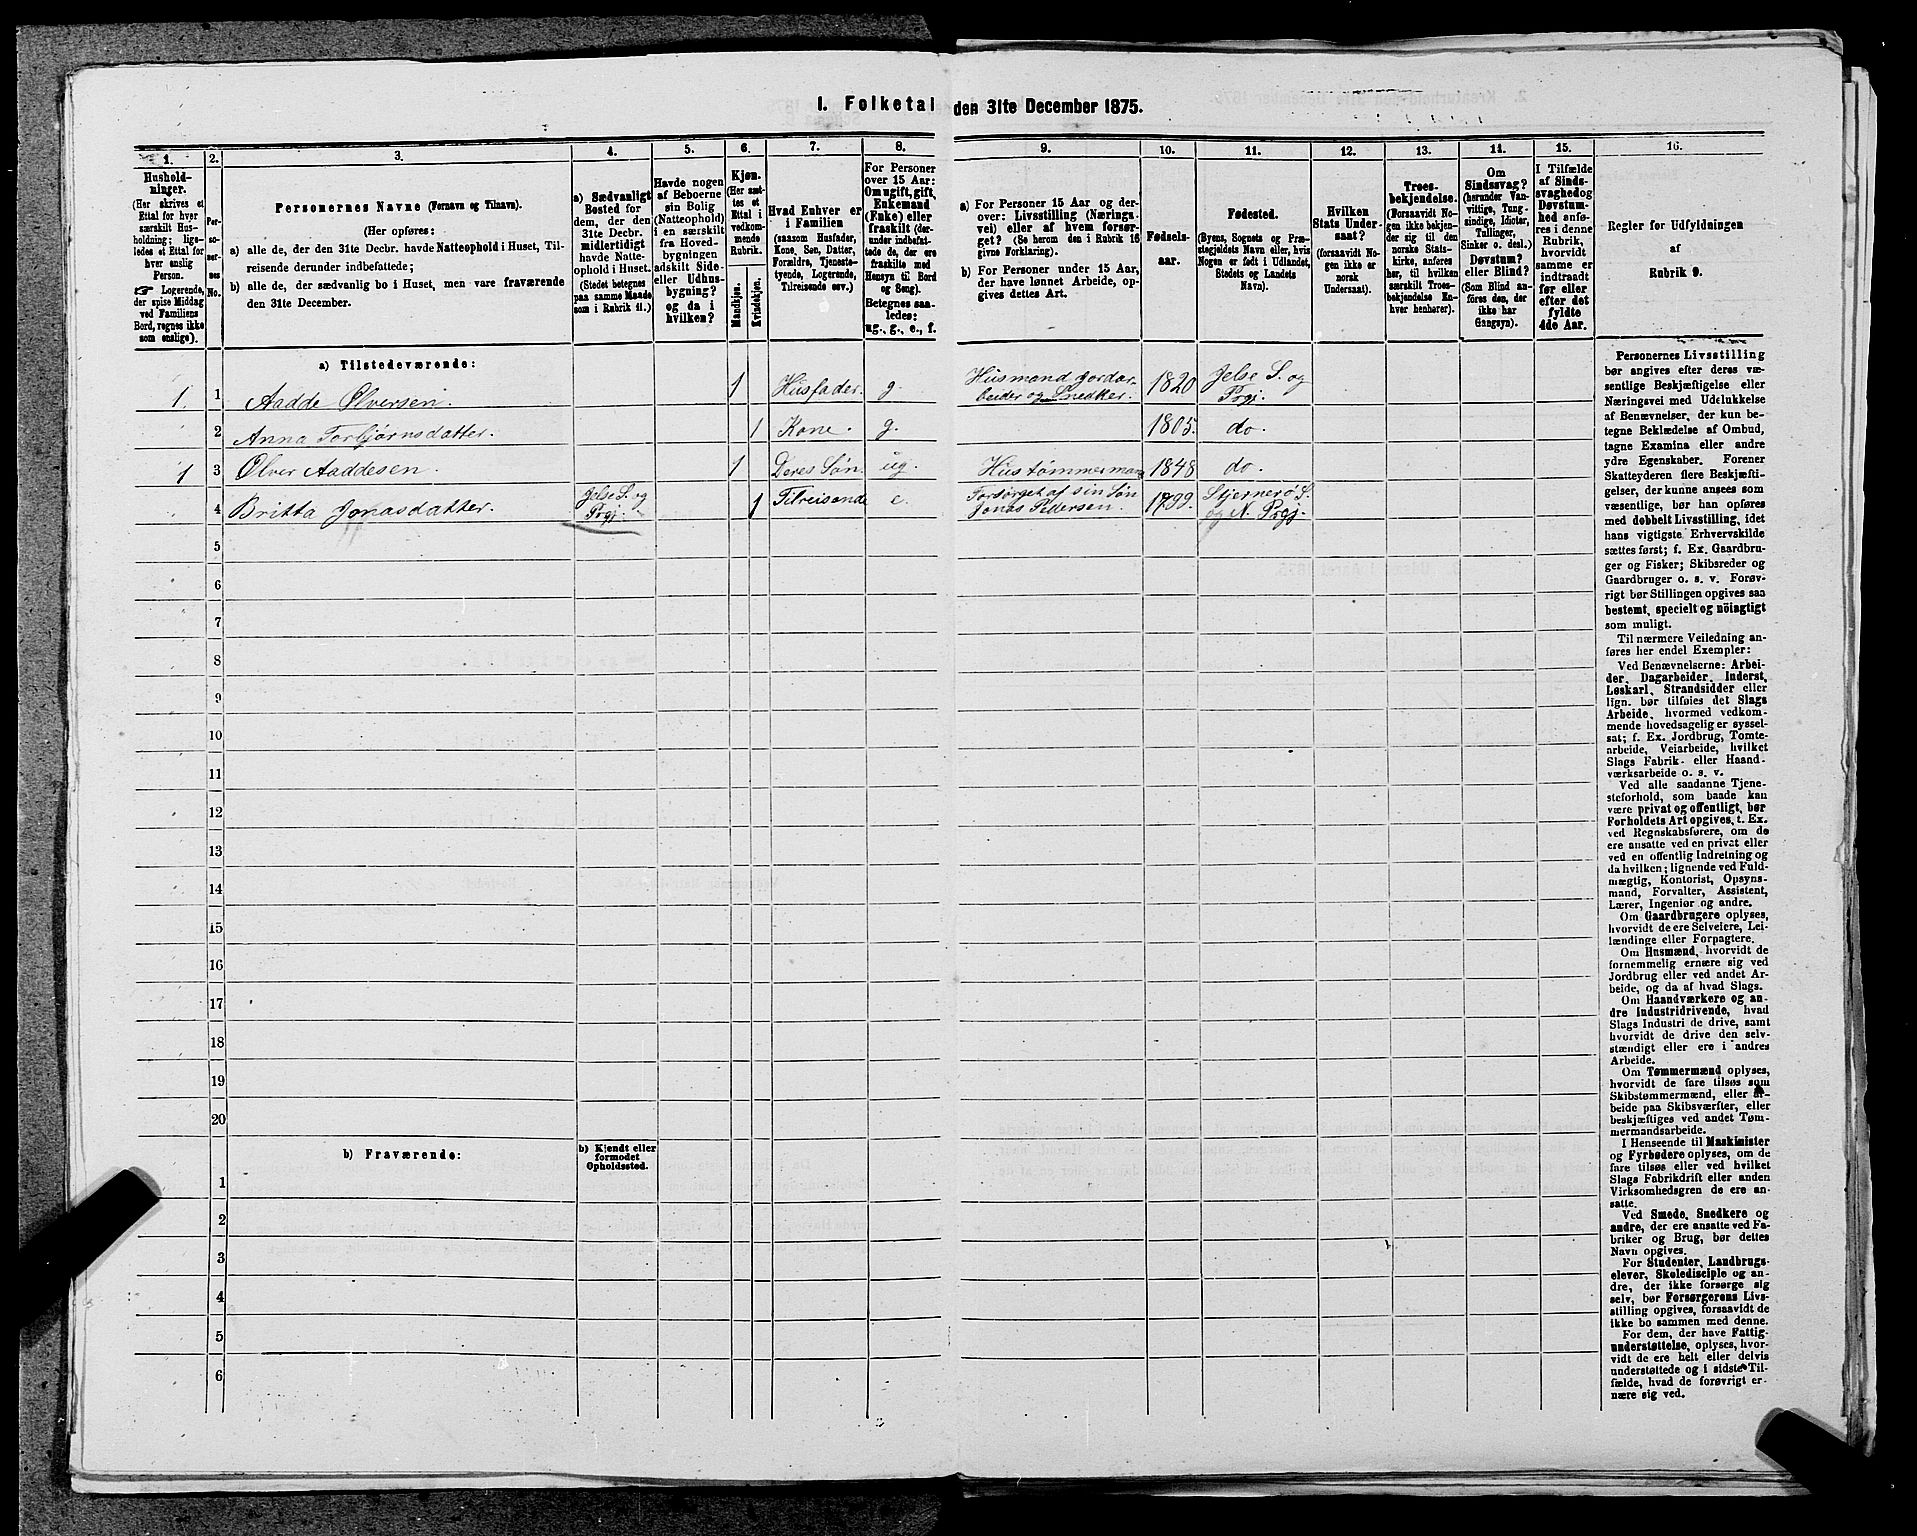 I. Folketal den 31te December 1875.
1.
2.
3.
4.
5.
6.
7.
8.
9.
10.
11.
12.
13.
14.
15.
16.
Hushold-
ninger.
(Her skrives et
Ettal for hver
særskilt Hus-
holdning; lige-
ledes et Ettal for
hver enslig
Person.
☞ Logerende,
der spise Middag
ved Familiens
Bord, regnes ikke
som enslige).
Per-
so-
ner-
nes
No.
Personernes Navne (Fornavn og Tilnavn).
(Her opføres:
a) alle de, der den 31te Decbr. havde Natteophold i Huset, Til-
reisende derunder indbefattede;
b) alle de, der sædvanlig bo i Huset, men vare fraværende
den 31te December.
a) Sædvanligt
Bosted for
dem, der den
31te Decbr.
midlertidigt
havde Natte-
ophold i Huset.
(Stedet betegnes
paa samme Maade
som i Rubrik 11.)
Havde nogen
af Beboerne
sin Bolig
(Natteophold)
i en særskilt
fra Hoved-
bygningen
adskilt Side-
eller Udhus-
bygning?
og da i
hvilken?
Kjøn.
(Her sæt-
tes et
Ettal i
vedkom-
mende
Rubrik.
Mandkjøn.
Kvindekjøn.
Hvad Enhver er
i Familien
(saasom Husfader,
Kone, Søn, Datter,
Forældre, Tjeneste-
tyende, Logerende,
Tilreisende osv.)
For Personer
over 15 Aar:
Om ugift, gift,
Enkemand
(Enke) eller
fraskilt (der-
under indbefat-
tede de, der ere
fraskilte med
Hensyn til Bord
og Seng).
Betegnes saa-
ledes:
ug., g., e., f.
a) For Personer 15 Aar og der-
over: Livsstilling (Nærings-
vei) eller af hvem forsør-
get? (Se herom den i Rubrik 16
givne Forklaring).
b) For Personer under 15 Aar,
der have lønnet Arbeide, op-
gives dettes Art.
Fødsels-
aar.
Fødested.
(Byens, Sognets og Præ-
stegjeldets Navn eller, hvis
Nogen er født i Udlandet,
Stedets og Landets
Navn).
Hvilken
Stats Under-
saat?
(forsaavidt No-
gen ikke er
norsk
Undersaat).
Troes-
bekjendelse.
(Forsaavidt No-
gen ikke bekjen-
der sig til den
norske Stats-
kirke, anføres
her, til hvilken
særskilt Troes-
bekjendelse En-
hver henhører).
Om
Sindssvag?
(herunder Van-
vittige, Tung-
sindige, Idioter,
Tullinger,
Sinker o. desl.)
Døvstum?
eller Blind?
(Som Blind an-
føres den, der
ikke har
Gangsyn).
I Tilfælde
af Sinds-
svaghed og
Døvstum-
hed anfø-
res i denne
Rubrik,
hvorvidt
samme er
indtraadt
før eller
efter det
fyldte
4de Aar.
Regler for Udfyldningen
af
Rubrik 9.
a) Tilstedeværende:
1. 1 Aadde Ølversen. 1 Husfader. g. Husmand Jordar-
beider og Snedker. 1820 Jelse S. og
Prgj.
2 Anna Torbjørnsdatter. 1 Kone. g. 1805. do.
1 3 Ølver Aaddesen. 1 Deres Søn. ug. Hustømmermand 1848 do.
4 Britta Jonasdatter. Jelse S. og
Prgj. 1 Tilreisende e. Forsørget af sin Søn
Jonas Pedersen. 1799. Stjernerø S.
og N. Prgj.
5
6
7
8
9
10
11
12
13
14
15
16
17
18
19
20
b) Fraværende:
b) Kjendt eller
formodet
Opholdssted.
1
2
3
4
5
6
Personernes Livsstilling
bør angives efter deres væ-
sentlige Beskjæftigelse eller
Næringsvei med Udelukkelse
af Benævnelser, der kun be-
tegne Beklædelse af Ombud,
tagne Examina eller andre
ydre Egenskaber. Forener
Skatteyderen flere Beskjæfti-
gelser, der kunne ansees som
væsentlige, bør han opføres
med dobbelt Livsstilling, idet
hans vigtigste Erhvervskilde
sættes først; f. Ex. Gaardbru-
ger og Fisker; Skibsreder og
Gaardbruger o. s. v. Forøv-
rigt bør Stillingen opgives saa
bestemt, specielt og nöiagtigt
som muligt.
Til nærmere Veiledning an-
føres her endel Exempler:
Ved Benævnelserne: Arbei-
der, Dagarbeider, Inderst,
Løskarl, Strandsidder eller
lign. bør tilføies det Slags
Arbeide, hvormed vedkom-
mende hovedsagelig er syssel-
sat; f. Ex. Jordbrug, Tomte-
arbeide, Veiarbeide, hvilket
Slags Fabrik- eller Haand-
værksarbeide o. s. v.
Ved alle saadanne Tjene-
steforhold, som baade kan
være privat og offentligt, bør
Forholdets Art opgives, t. Ex.
ved Regnskabsførere, om de
ere ansatte ved en privat eller
ved en offentlig Indretning og
da hvilken; lignende ved Fuld-
mægtig, Kontorist, Opsyns-
mand, Forvalter, Assistent,
Lærer, Ingeniør og andre.
Om Gaardbrugere oplyses,
hvorvidt de ere Selveiere, Lei-
lændinge eller Forpagtere.
Om Husmænd, hvorvidt de
fornemmelig ernære sig ved
Jordbrug eller ved andet Ar-
beide, og da af hvad Slags.
Om Haandværkere og an-
dre Industridrivende, hvad
Slags Industri de drive, samt
hvorvidt de drive den selv-
stændigt eller ere i andres
Arbeide.
Om Tømmermænd oplyses,
hvorvidt de fare tilsøs som
Skibstømmermænd, eller ar-
beide paa Skibsværfter, eller
beskjæftiges ved andet Tøm-
mermandsarbeide.
I Henseende til Maskinister
og Fyrbødere oplyses, om de
fare tilsøs eller ved hvilket
Slags Fabrikdrift eller anden
Virksomhedsgren de ere an-
satte.
Ved Smede, Snedkere og
andre, der ere ansatte ved Fa-
briker og Brug, bør dettes
Navn opgives.
For Studenter, Landbrugs-
elever, Skoledisciple og an-
dre, der ikke forsørge sig
selv, bør Forsørgerens Livs-
stilling opgives, forsaavidt de
ikke bo sammen med denne.
For dem, der have Fattig-
understøttelse, oplyses, hvor-
vidt de ere helt eller delvis
understøttede og i sidste Til-
fælde, hvad de forøvrigt er-
nære sig ved.